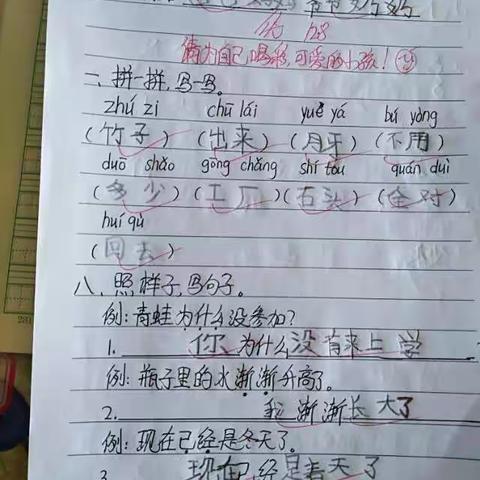 倩为自己喝彩,可爱的小孩!
二、拼一拼,写一写。
zhú zi chū lái yuè yá bú yòng
(竹子) (出来) (月牙) (不用)
duō shǎo gōng chǎng shí tou quán duì
(多少) (工厂) (石头) (全对)
huí qù
(回去)
八、照样子,写句子。
例:青蛙为什么没参加?
1. 你为什么没有来上学
例:瓶子里的水渐渐升高了。
2. 我渐渐长大了
例:现在已经是冬天了。
3. 现在已经是春天了